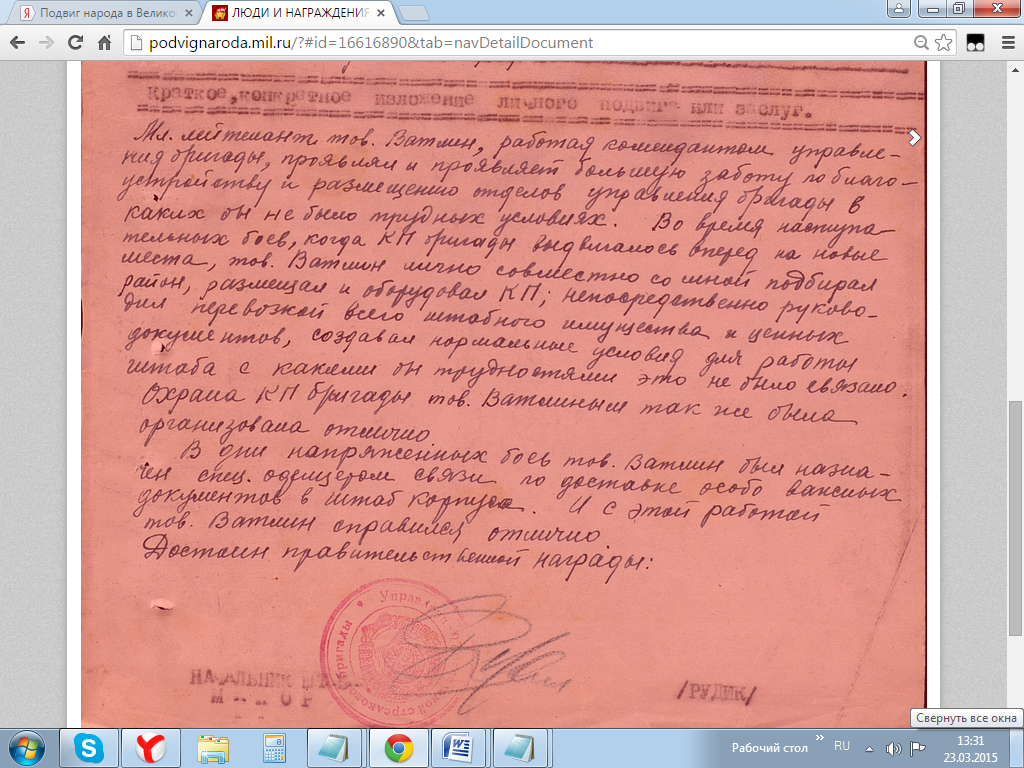 Подвиг народа в Велико
ЛЮДИ И НАГРАЖДЕНИЯ
podvignaroda.mil.ru/?#id=16616890&tab=navDetailDocument
Краткое,конкретное изложение личного подвига или заслуг.
Мл. лейтенант тов. Ватлин, работая комендантом управле-
ния бригады, проявлял и проявляет большую заботу по благо-
устройству и размещению отделов управления бригады в
каких бы не было трудных условиях. Во время наступа
тельных боев, когда КП бригады выдвигалось вперед на новые
места, тов. Ватлин лично совместно со мной подбирал
район, размещал и оборудовал КП; непосредственно руково-
дил перевозкой всего штабного имущества и ценных
документов, создавал нормальные условия для работы
штаба с какими бы трудностями это не было связано.
Охрана КП бригады тов. Ватлиным так же была
организована отлично.
В дни напряженных боев тов. Ватлин был назна-
чен спец. офицером связи по доставке особо важных
документов в штаб корпуса. И с этой работой
тов. Ватлин справился отлично.
Достоин правительственной награды:
Управление
стрелковой бригады
НАЧАЛЬНИК ШТАБА
МАЙОР /РУДИК/
Свернуть все окна
Рабочий стол
RU
13:31
23.03.2015